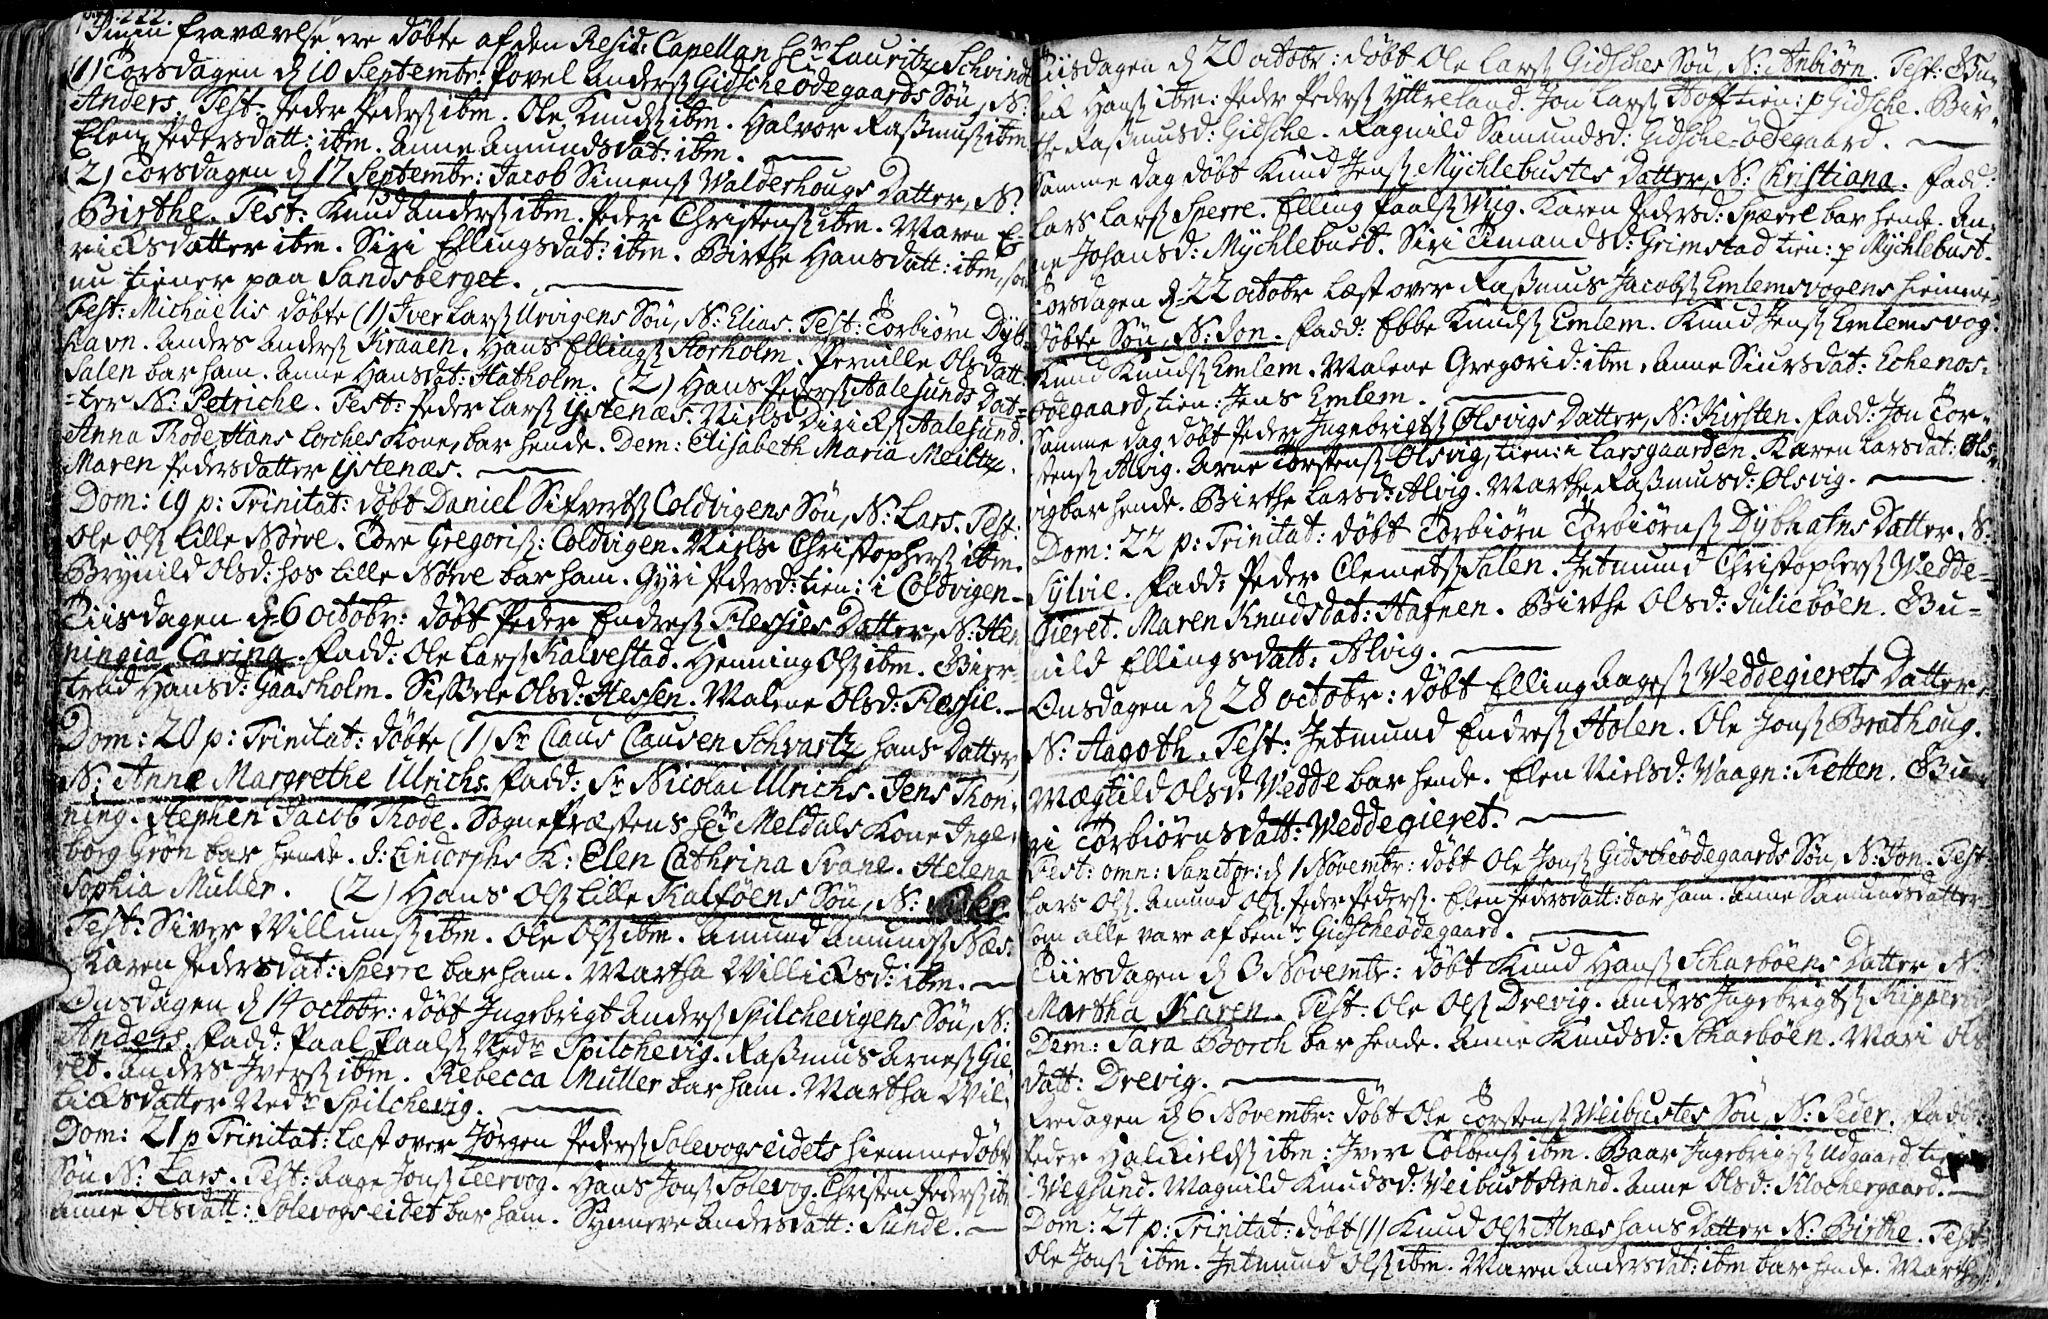 222.
I min fraværelse ere döbte af den Resid: Capellan Hr Lauritz Schvindt
(1) Torsdagen d 10 Septembr: Povel Anderss Gidscheödegaards Sön, N:
Anders. Test. Peder Pederss ibm. Ole Knudss ibm. Halvor Rassmuss ibm
Elen Pedersdatt: ibm. Anne Amundsdat: ibm.
(2) Torsdagen d 17 Septembr: Jacob Simenss Walderhougs Datter, N:
Birthe. Test: Knud Anderss ibm. Peder Christenss ibm. Maren E-
richsdatter ibm. Siri Ellingsdat: ibm. Birthe Hansdatt: ibm, som
nu tiener paa Sandsberget.
Fest: Michaelis döbte (1) Iver Larss Urvigens Sön, N: Elias. Test: Torbiörn Dÿb-
havn. Anders Anderss Kraaen. Hans Ellingss Storholm. Pernille Olsdatt:
Salen bar ham. Anne Hansdat: Hatholm. (2) Hans Pederss Aalesunds Dat-
-ter N: Petriche. Test: Peder Larss ÿstenæs. Niels Dirichss Aalesund.
Anna Thode, Hans Lorches Kone, bar hende. Dem: Elisabeth Maria Meiltze.
Maren Pedersdatter ÿstenæs.
Dom: 19 p: Trinitat: döbt Daniel Sifvertss Coldvigens Sön, N: Lars. Test:
Ole Olss Lille Nörve. Tore Gregoriss: Coldvigen. Niels Christopherss ibm.
Brÿnild Olsd: hos Lille Nörve bar ham. Gÿri Pedersd: tien: i Coldvigen.
Tiisdagen d 6 Octobr: döbt Peder Endress Flessies Datter, N: Hen
ningia Carina. Fadd: Ole Larss Kalvestad. Henning Olss ibm. Bier-
trud Hansd: Gaasholm. Sissele Olsd: Hessen. Malene Olsd: Flessie.
Dom: 20 p: Trinitat: döbte (1) Sr Claus Clausen Schvartz, hans Datter,
N: Anne Margrethe Ulrichs. Fadd: Sr Nicolai Ulrichs. Jens Thon-
ning. Stephen Jacob Thode. Sognepræstens Hr Meldals Kone Inge-
borg Grön bar hende. S: Lindorphs K: Elen Cathrina Svane. Helena
Sophia Muller. (2) Hans Olss Lille Kalföens Sön, N: Ole.
Test: Siver Willumss ibm. Ole Olss ibm. Amund Amundss Næs.
Karen Pedersdat: Sperre bar ham. Martha Willichsd: ibm.
Onsdagen d 14 octobr: döbt Ingebrigt Anderss Spilchevigens Sön, N:
Anders. Fadd: Paal Paalss Nedr Spilchevig. Rassmus Arness Gie
ret. Anders Iverss ibm. Rebecca Muller bar ham. Martha Wil-
lichsdatter Nedr Spilchevig.
Dom: 21 p Trinitat: læst over Jörgen Pederss Solevogseidets hiemmedöbt
Sön N: Lars. Test: Aage Jonss Leervog. Hans Jonss Solevog. Christen Pederss ib
Anne Olsdatt: Solevogseidet bar ham. Synneve Andersdatt: Sunde.
Tiisdagen d 20 octobr: döbt Ole Larss Gidsches Sön, N: Anbiörn. Test: Gun-
Hanss ibm: Peder Pederss Ÿttreland. Jon Larss Hoff tien: p Gidsche. Bir-
the Rassmusd: Gidsche. Ragnild Samundsd: Gidsche-ödegaard.
Samme dag döbt Knud Jenss Mÿchlebustes Datter, N: Christiana. Fadd:
Lars Larss Sperre. Elling Paalss Wiig. Karen Pedersd: Spærre bar hende. An-
ne Johansd: Mÿchlebust. Siri Timandsd: Grimstad tien: p Mÿchlebust.
Torsdagen d 22 octobr læst over Rassmus Jacobss Emlemsvogens hiemme-
döbte Sön, N: Jon. Fadd: Ebbe Knudss Emlem. Knud Jenss Emlemsvog.
Knud Knudss Emlem. Malene Gregorid: ibm. Anne Siursdat: Echenos-
ödegaard, tien: Jens Emlem.
Samme dag döbt Peder Ingebrigtss Ølsvigs Datter, N: Kirsten. Fadd: Jon Tor-
stenss Alvig. Arne Torstenss Ølsvig, tien: i Larsgaarden. Karen Larsdat: Øls-
vig bar hende. Birthe Larsd: Alvig. Marthe Rassmusd: Ølsvig.
Dom: 22 p: Trinitat: döbt Torbiörn Torbiörnss Dÿbhafns Datter N:
Sylvie. Fadd: Peder Clemetss Salen. Jetmund Christopherss Wedde-
gieret. Maren Knudsdat: Hafnen. Birthe Olsd: Julieböen. Gu-
nild Ellingsdatt: Alvig.
Onsdagen d 28 octobr: döbt Elling Aagess Veddegierets Datter,
N: Aagoth. Test: Jetmund Endress Holen. Ole Jonss Brathoug.
Mægtild Olsd: Vedde bar hende. Elen Nielsd: Vaagn: Fletten. Gu-
ri Torbiörnsdatt: Weddegieret.
Fest: omn: Sanctor: d 1 Novembr: döbt Ole Jonss Gidscheödegaards Sön, N: Jon. Test:
Lars Olss. Amund Olss. Peder Pederss. Elen Pedersdatt: bar ham. Anne Samundsdatter
som alle vare af bemte Gidscheödegaard.
Tiirsdagen d 3 Novembr: döbt Knud Hanss Scharböens Datter N:
Martha Karen. Test: Ole Olss Drevig. Anders Ingebregtss Kipper
Dem: Sara Borch bar hende. Anne Knudsd: Skarböen. Mari Ols
datt: Drevig.
Fredagen d 6 Novembr: döbt Ole Torstenss Weibustes Sön, N: Peder. Fadd:
Peder Halkieldss ibm: Iver Colbenss ibm. Baar Ingebrigtss Udgaard tien
Vegsund. Magnild Knudsd: Veibust strand. Anne Olsd: Klochergaard.
Dom: 24 p: Trinitat: döbt (1) Knud Olss Alnæs hans Datter N: Birthe. Test:
Ole Jonss ibm. Jetmund Olss ibm. Maren Andersdat: ibm bar hende. Marthe